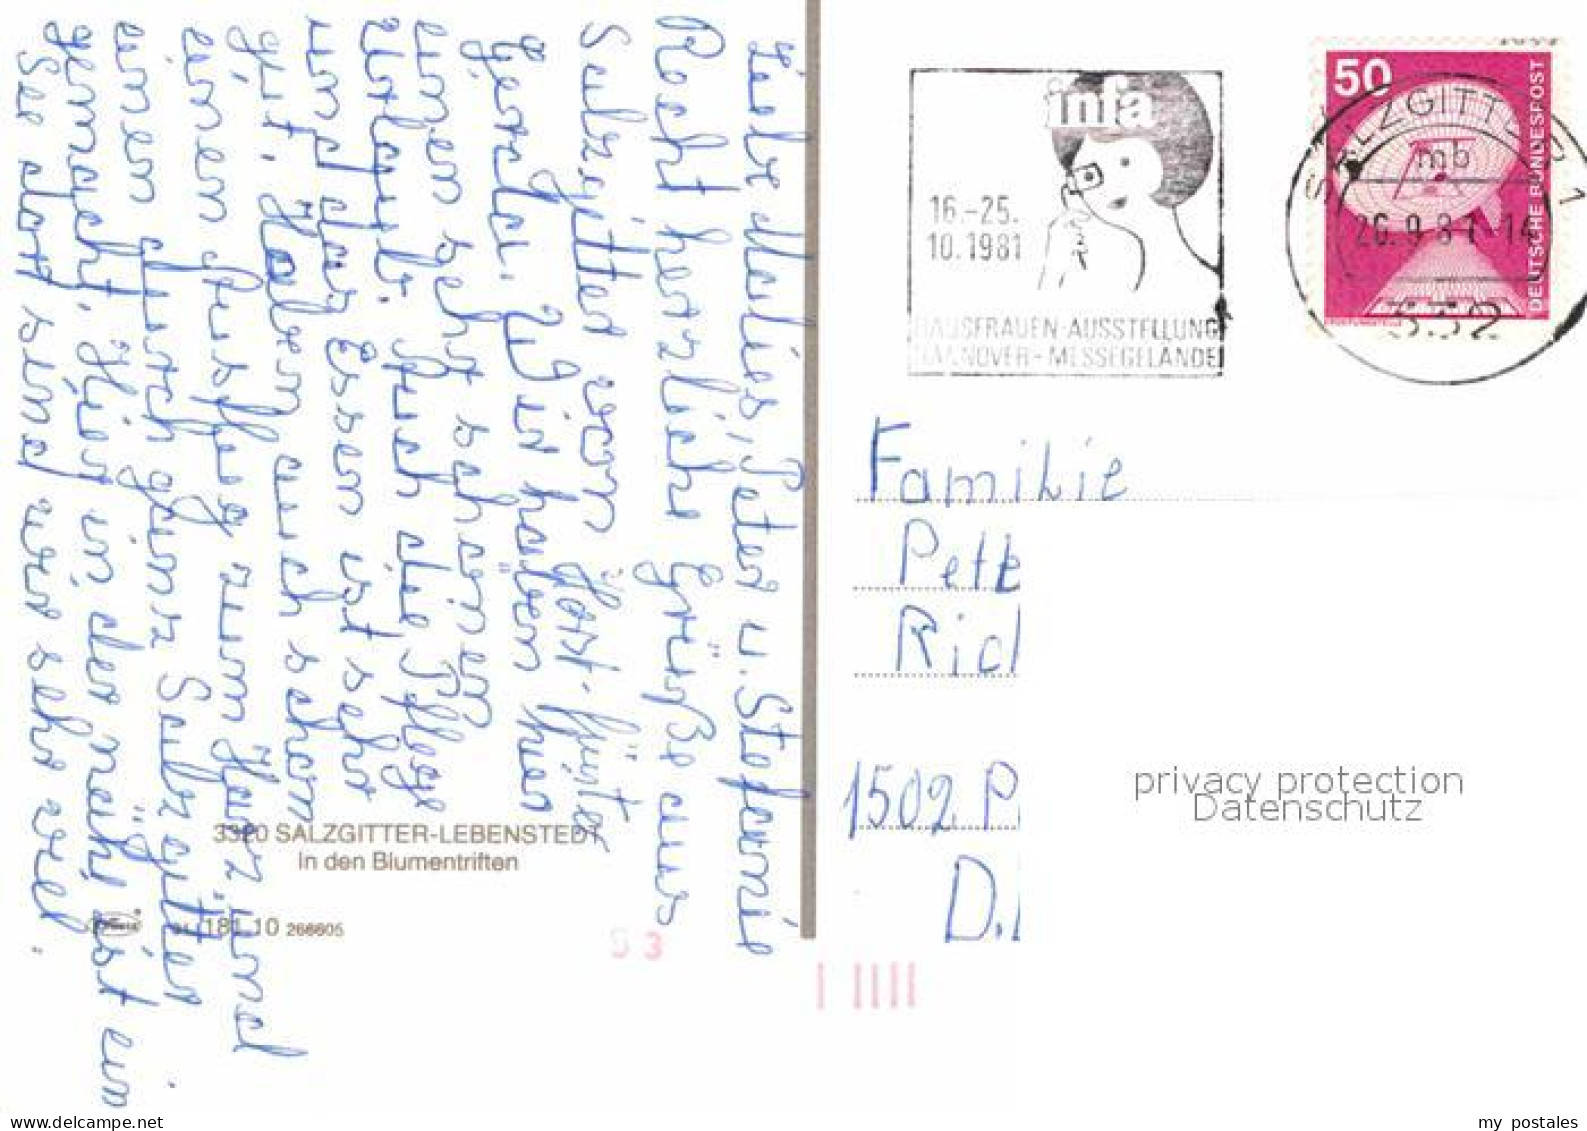 Liebe Malies, Peter u. Stefanie
Recht herzliche Grüße aus
Salzgitter von Horst-Günter
Gerda. Wir haben hier
einen sehr schönen
Urlaub. Auch die Pflege
und das Essen ist sehr
gut. Haben auch schon
einen Ausflug zum Harz und
einen durch ganz Salzgitter
gemacht. Hier in der nähe ist ein
See dort sind wir sehr viel.
3320 SALZGITTER-LEBENSTEDT
In den Blumentriften
181.10 266605
93
infa
16.-25.
10.1981
HAUSFRAUEN-AUSSTELLUNG
HANNOVER-MESSEGELÄNDE
50
DEUTSCHE BUNDESPOST
SALZGITTER 1
mb
26.9.81-14
332
Familie
Pet
Ric
1502 P
D.
privacy protection
Datenschutz
my postales